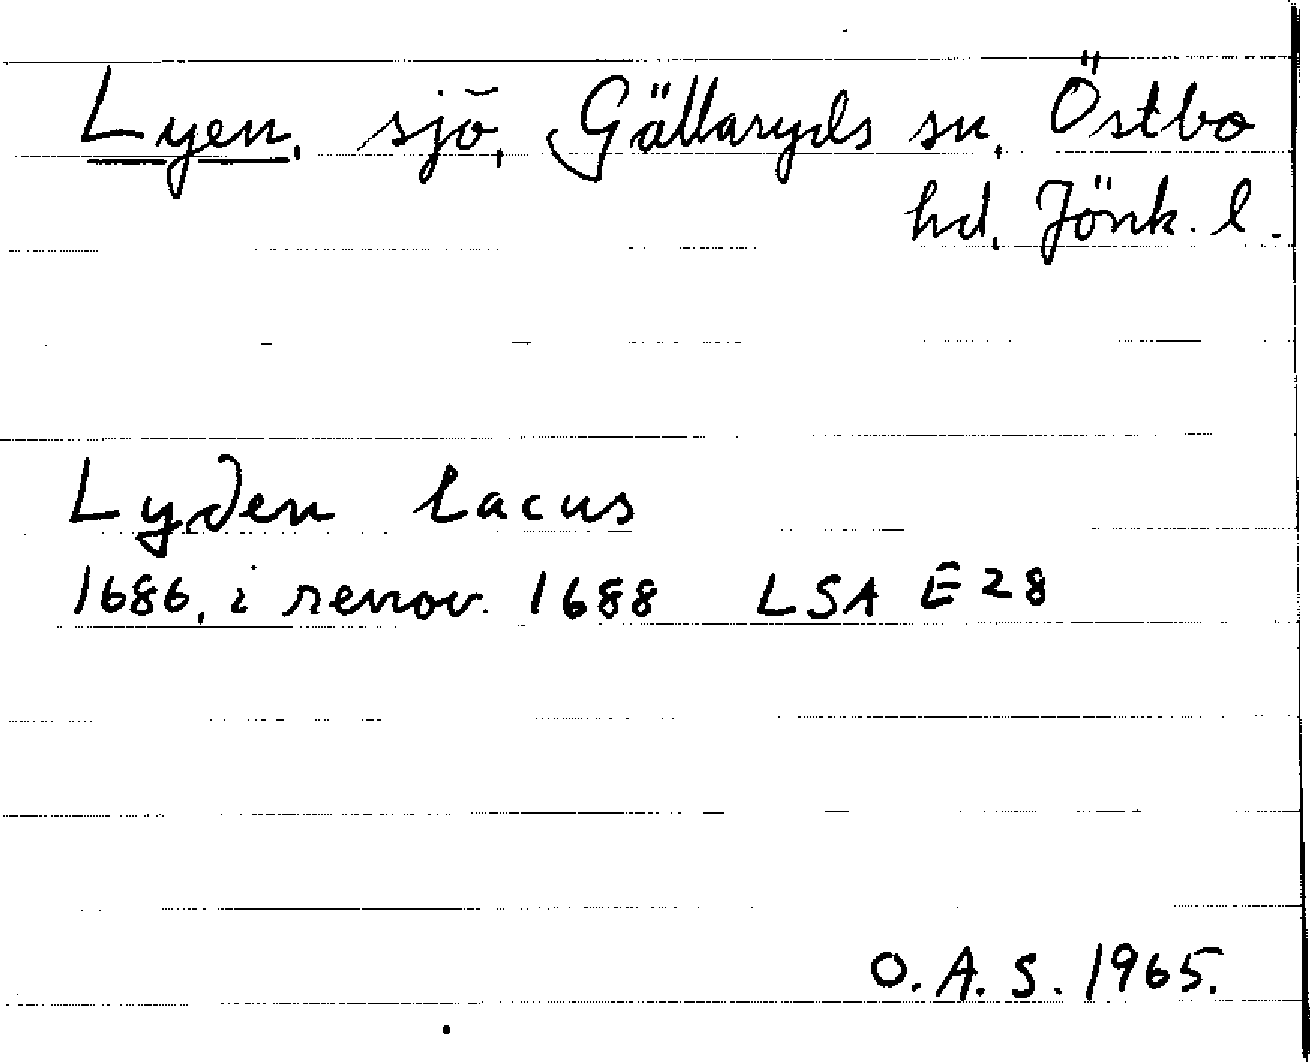 Lyen, sjö, Gällaryds sn, Östbo
hd, Jönk. l.
Lyden lacus
1686, i renov. 1688 LSA E 28
O. A. S. 1965.